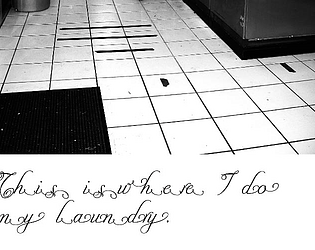 This is where I do
my laundry.